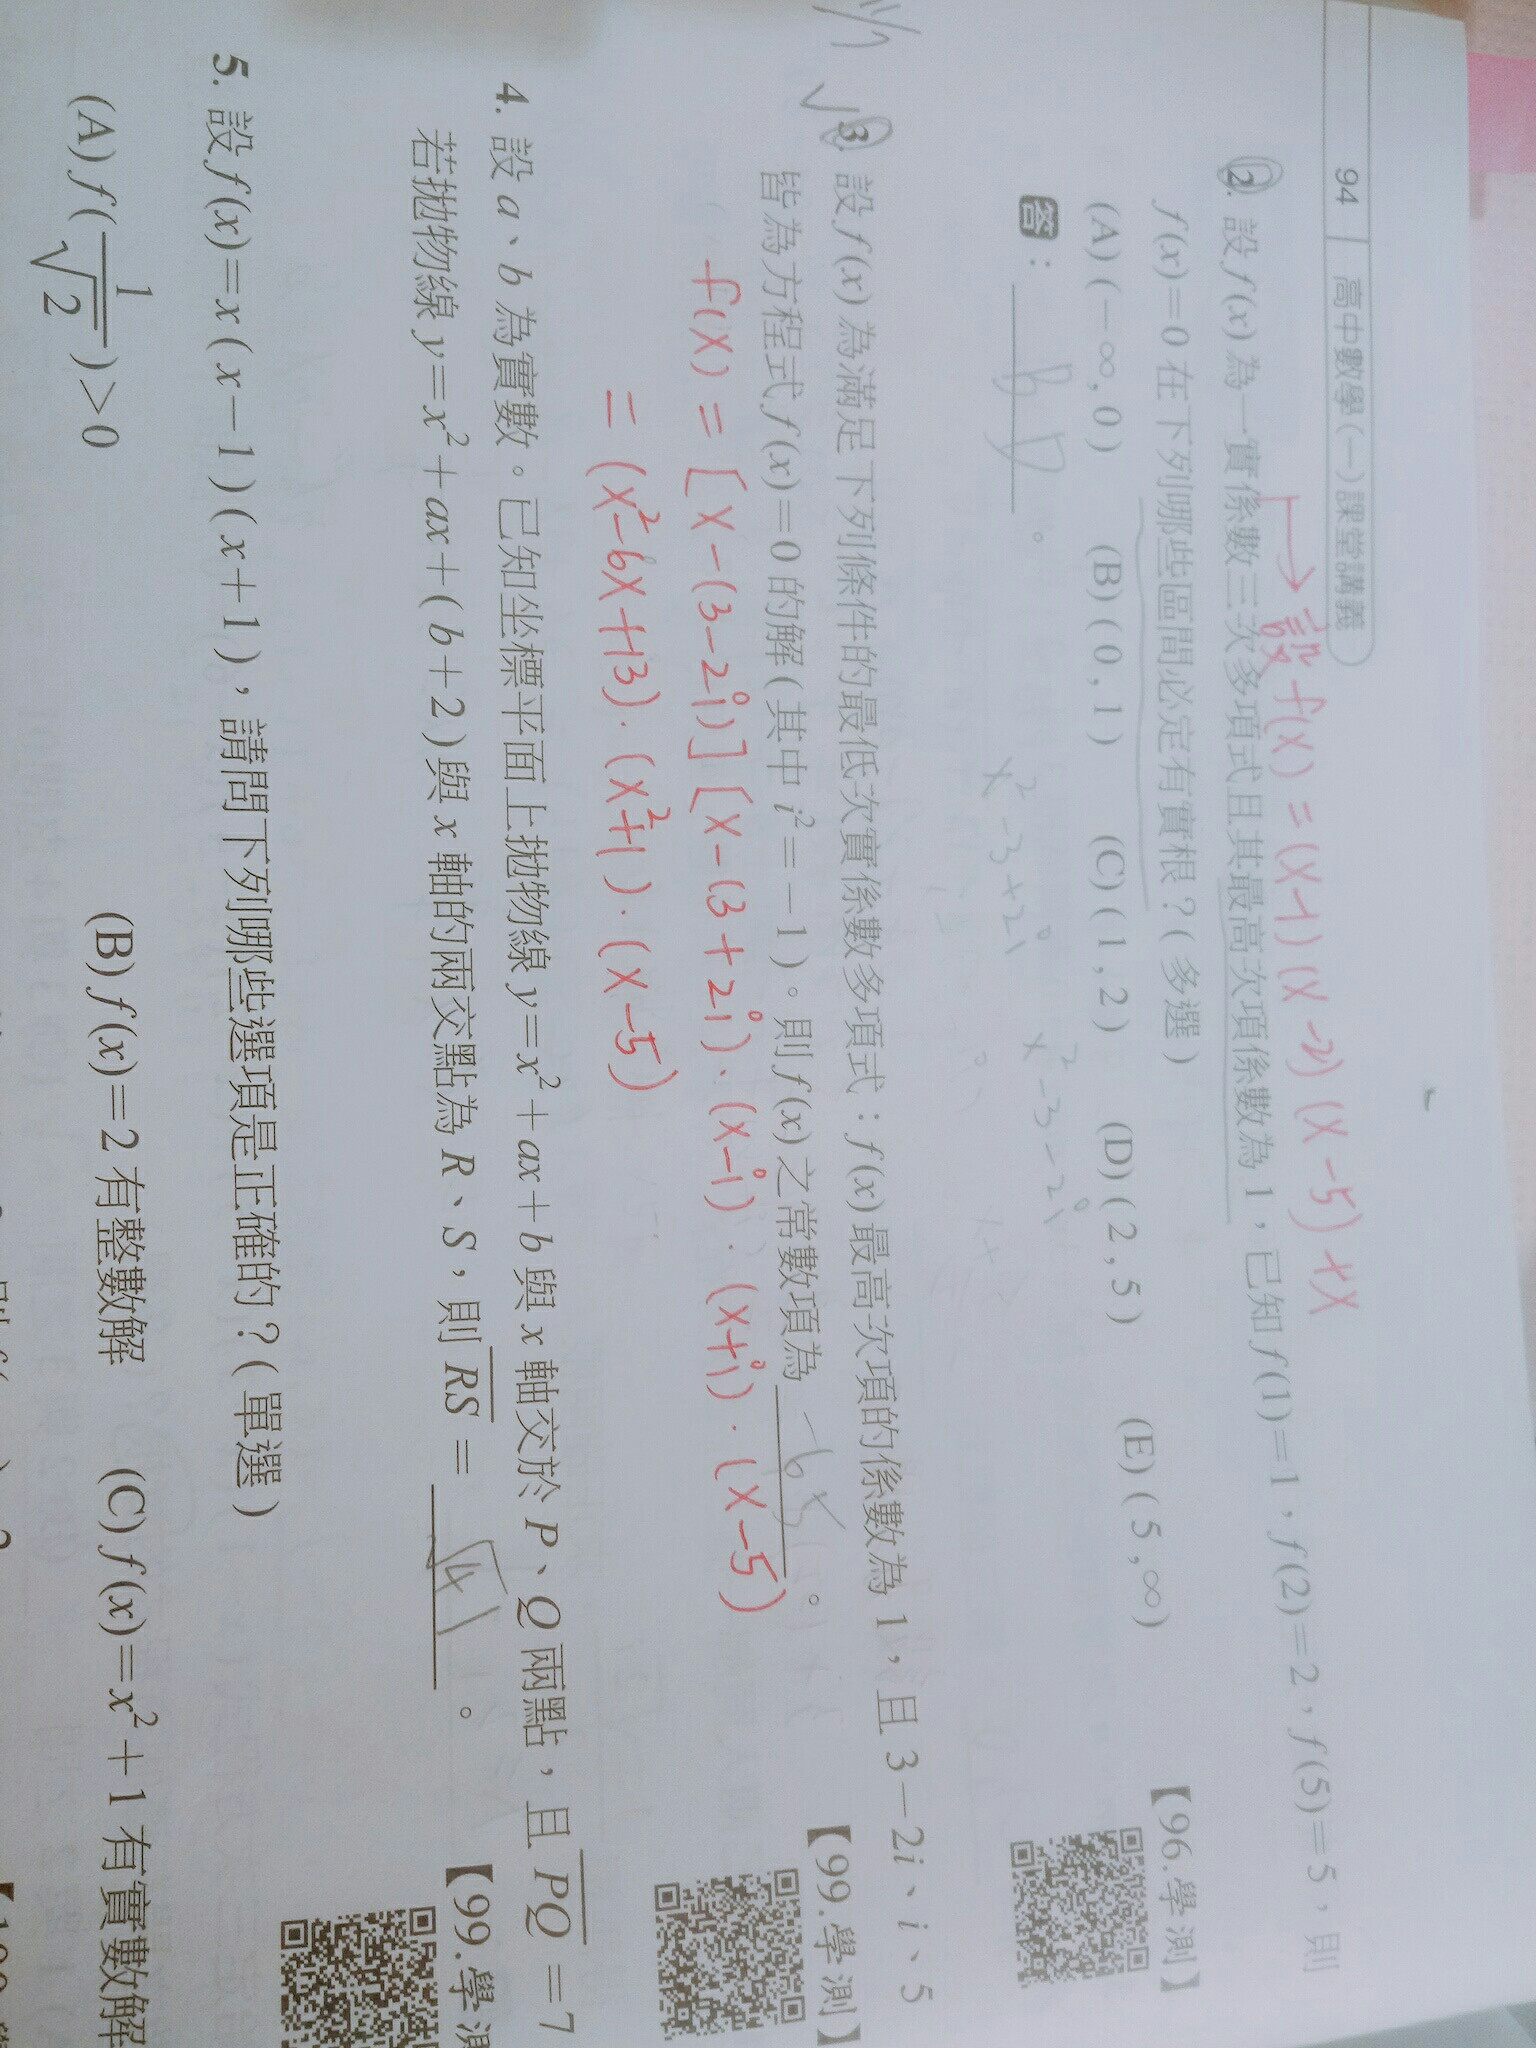 94 高中數學(一)課堂講義
設 f(x) = (x-1)(x-2)(x-5)+x
2. 設 f(x) 為一實係數三次多項式且其最高次項係數為 1，已知 f(1)=1，f(2)=2，f(5)=5，則
f(x)=0 在下列哪些區間必定有實根？(多選) 【96.學測】
(A)(-∞,0) (B)(0,1) (C)(1,2) (D)(2,5) (E)(5,∞)
答：
x²-3+2i x²-3-2i
3. 設 f(x) 為滿足下列條件的最低次實係數多項式：f(x) 最高次項的係數為 1，且 3-2i、i、5
皆為方程式 f(x)=0 的解(其中 i²=-1)。則 f(x) 之常數項為 -65。 【99.學測】
f(x) = [x-(3-2i)][x-(3+2i)·(x-i)·(x+i)·(x-5)
= (x²-6x+13)·(x²+1)·(x-5)
4. 設 a、b 為實數。已知坐標平面上拋物線 y=x²+ax+b 與 x 軸交於 P、Q 兩點，且 PQ=7
若拋物線 y=x²+ax+(b+2) 與 x 軸的兩交點為 R、S，則 RS = √41。 【99.學測
5. 設 f(x)=x(x-1)(x+1)，請問下列哪些選項是正確的？(單選)
(A) f(1/√2)>0 (B) f(x)=2 有整數解 (C) f(x)=x²+1 有實數解